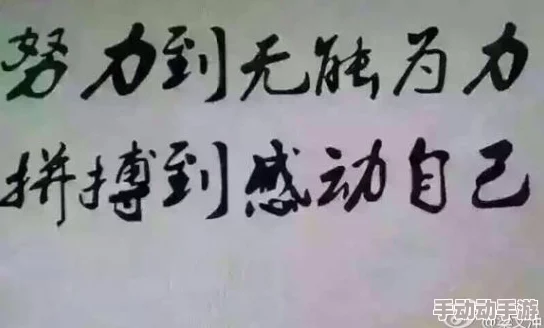 努力到无能为力
拼搏到感动自己
手动动手游
shoudongdong.com